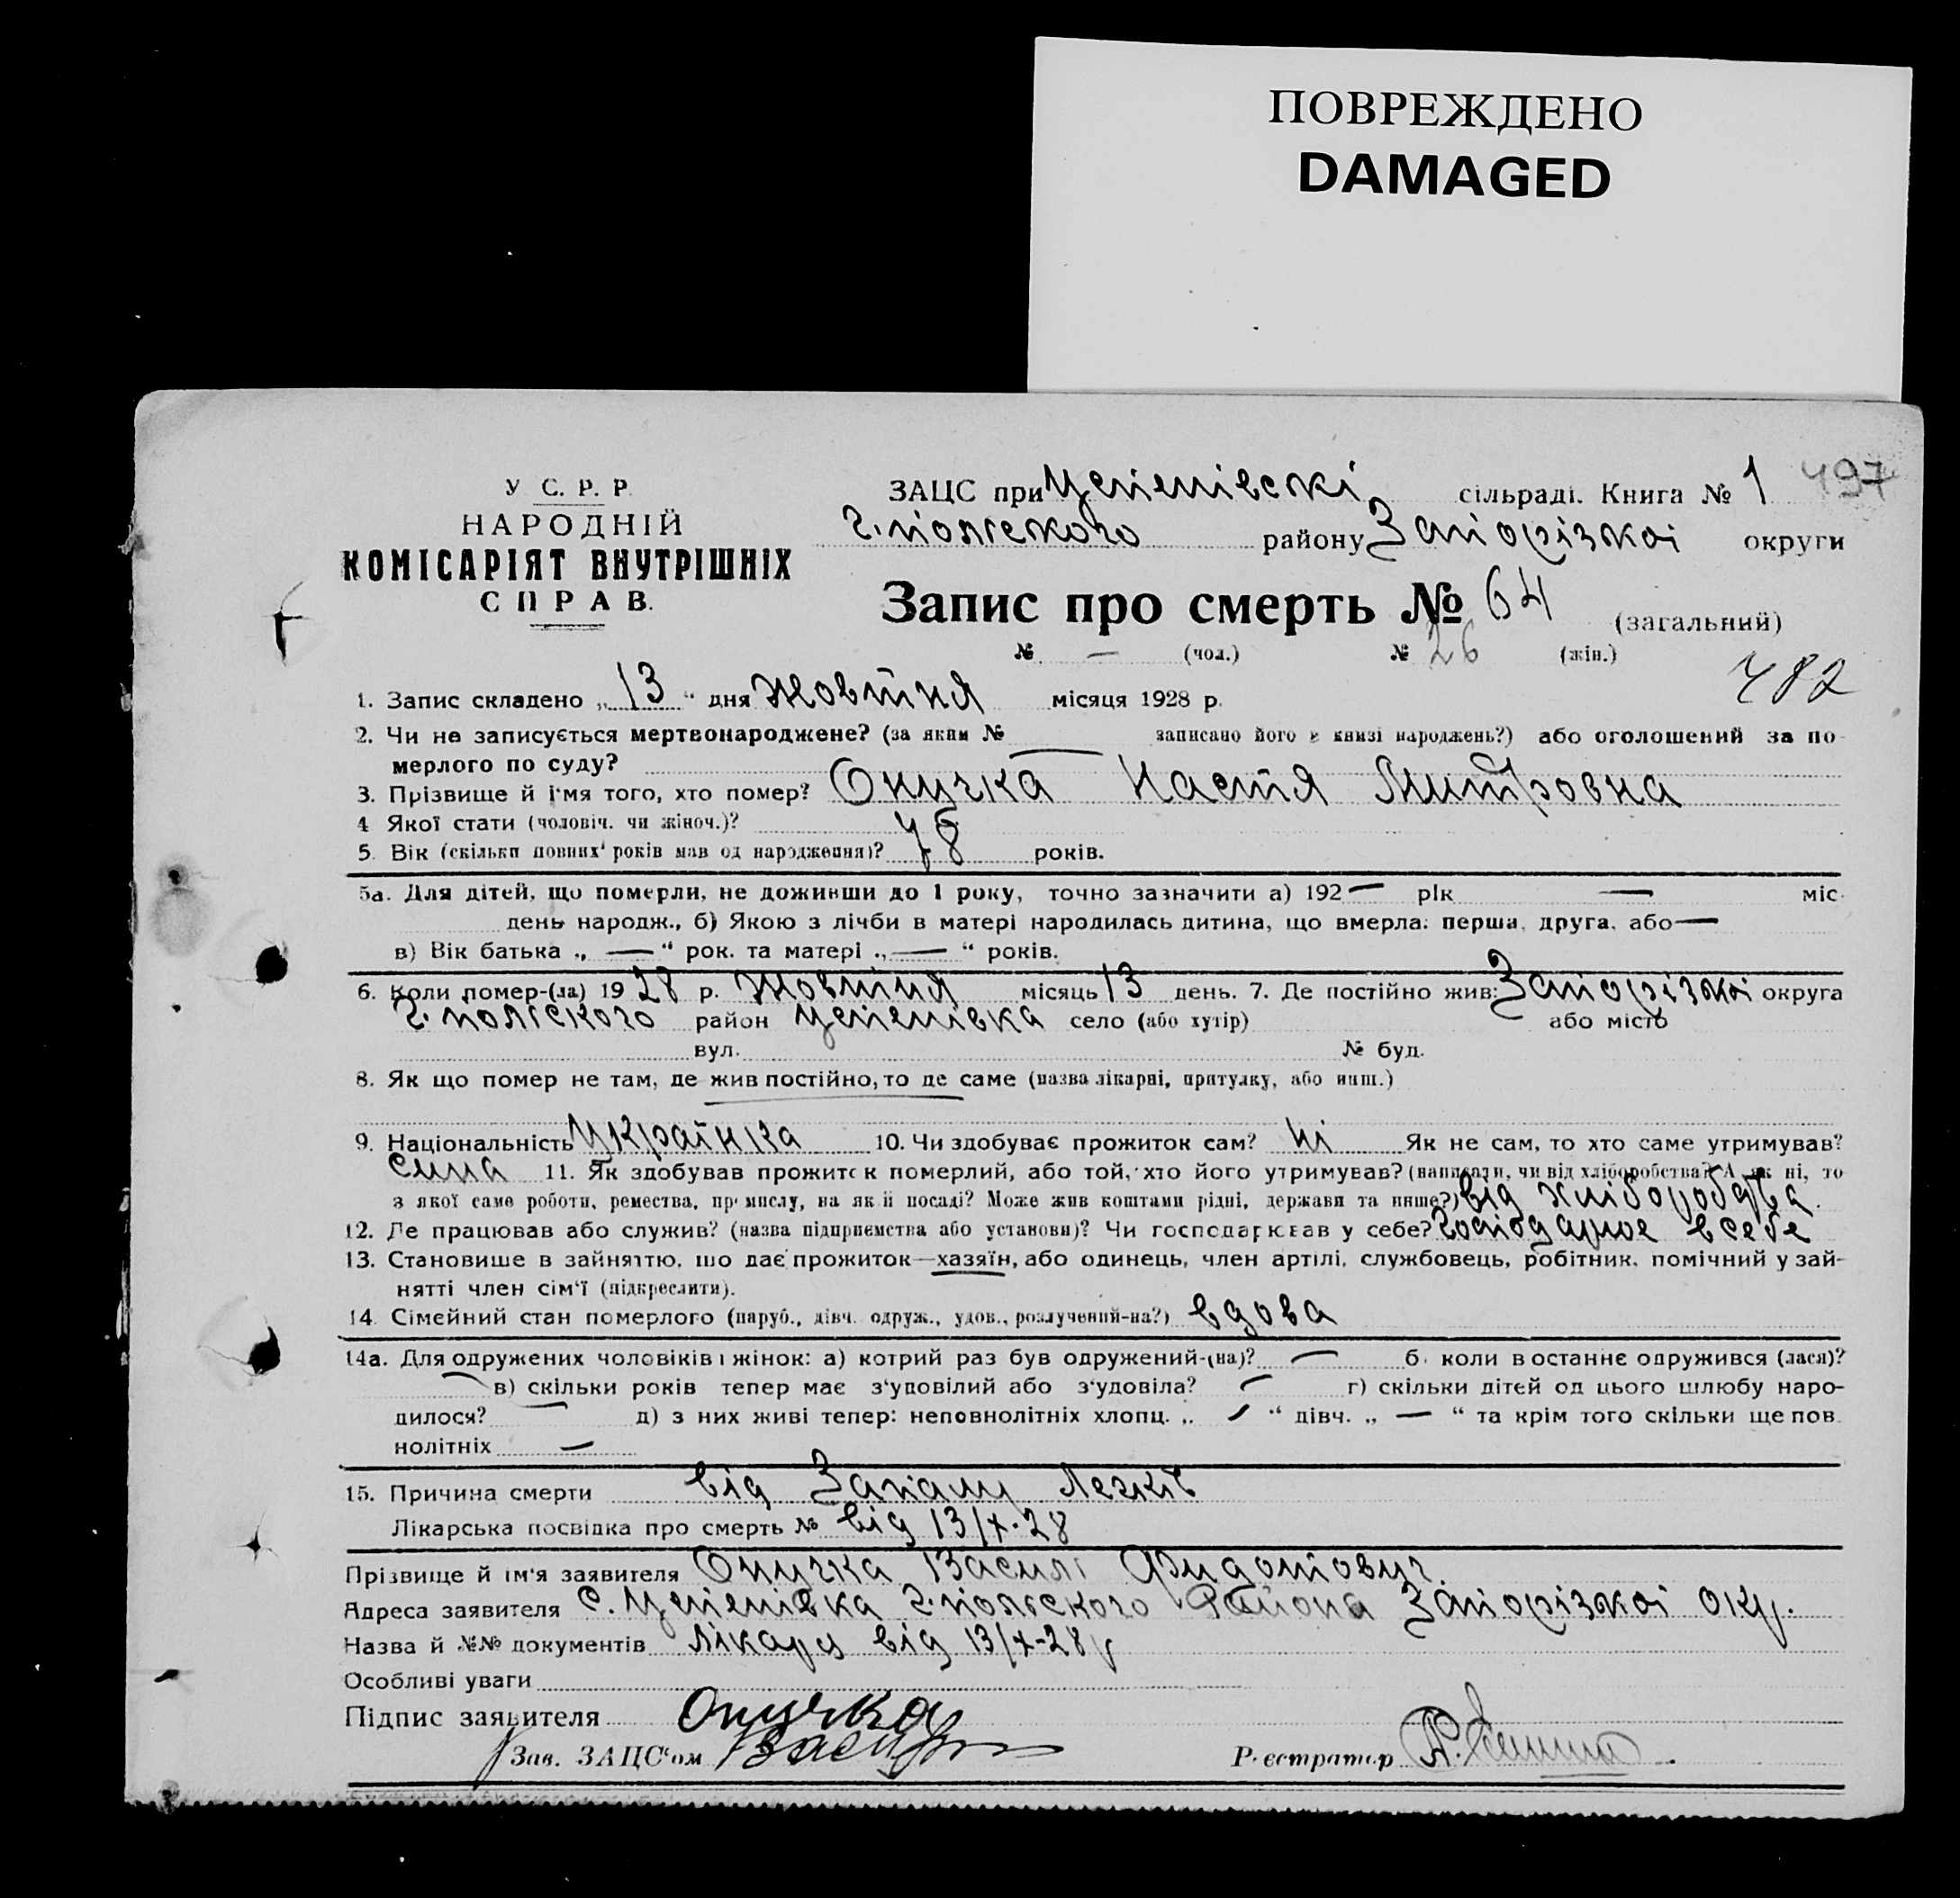 ПОВРЕЖДЕНО
DAMAGED
У С. Р. Р.
НАРОДНІЙ
КОМІСАРІЯТ ВНУТРІШНІХ
СПРАВ.
ЗАЦС при Успенівскі сільраді. Книга № 1 497
Г.польского району Запорізкої округи
Запис про смерть № 64 (загальний)
№ — (чол.) № 26 (жін.)
482
1. Запис складено „13“ дня Жовтня місяця 1928 р.
2. Чи не записується мертвонароджене? (за яким № записано його в книзі народжень?) або оголошений за по-
мерлого по суду? —
3. Прізвище й ім'я того, хто помер? Онучка Настя Митровна
4 Якої стати (чоловіч. чи жіноч.)?
5. Вік (скільки повних років мав од народження)? 78 років.
5а. Для дітей, що померли, не доживши до 1 року, точно зазначити а) 192— рік — міс.
день народж., б) Якою з лічби в матері народилась дитина, що вмерла: перша, друга, або —
в) Вік батька „—“ рок. та матері „—“ років.
6. Коли помер-(ла) 1928 р. Жовтня місяць 13 день. 7. Де постійно жив: Запорізкої округа
Г.польского район Успенівка село (або хутір) або місто
вул. № буд.
8. Як що помер не там, де жив постійно, то де саме (назва лікарні, притулку, або инш.)
9. Національність Українка 10. Чи здобуває прожиток сам? Ні Як не сам, то хто саме утримував?
Сина 11. Як здобував прожиток померлий, або той, хто його утримував? (написати, чи від хліборобства? А як ні, то
з якої саме роботи, ремества, промислу, на якій посаді? Може жив коштами рідні, держави та инше?) від хліборобства.
12. Де працював або служив? (назва підприємства або установи)? Чи господарював у себе? Господарює в себе
13. Становище в зайняттю, що дає прожиток—хазяїн, або одинець, член артілі, службовець, робітник, помічний у зай-
нятті член сім'ї (підкреслити).
14. Сімейний стан померлого (паруб., дівч. одруж., удов., розлучений-на?) вдова
14а. Для одружених чоловіків і жінок: а) котрий раз був одружений-(на)? — б. коли в останнє одружився (лася)?
— в) скільки років тепер має з'удовілий або з'удовіла? — г) скільки дітей од цього шлюбу наро-
дилося? — д) з них живі тепер: неповнолітніх хлопц. „—“ дівч. „—“ та крім того скільки ще пов-
нолітніх —
15. Причина смерти від Запалу Легкіх
Лікарська посвідка про смерть № від 13/X-28
Прізвище й ім'я заявителя Онучка Василь Фидотович.
Адреса заявителя с. Успенівка Г.польского Района Запорізкої окр.
Назва й №№ документів Лікаря від 13/X-28 р
Особливі уваги
Підпис заявителя Онучка
Зав. ЗАЦС'ом
Реєстратор